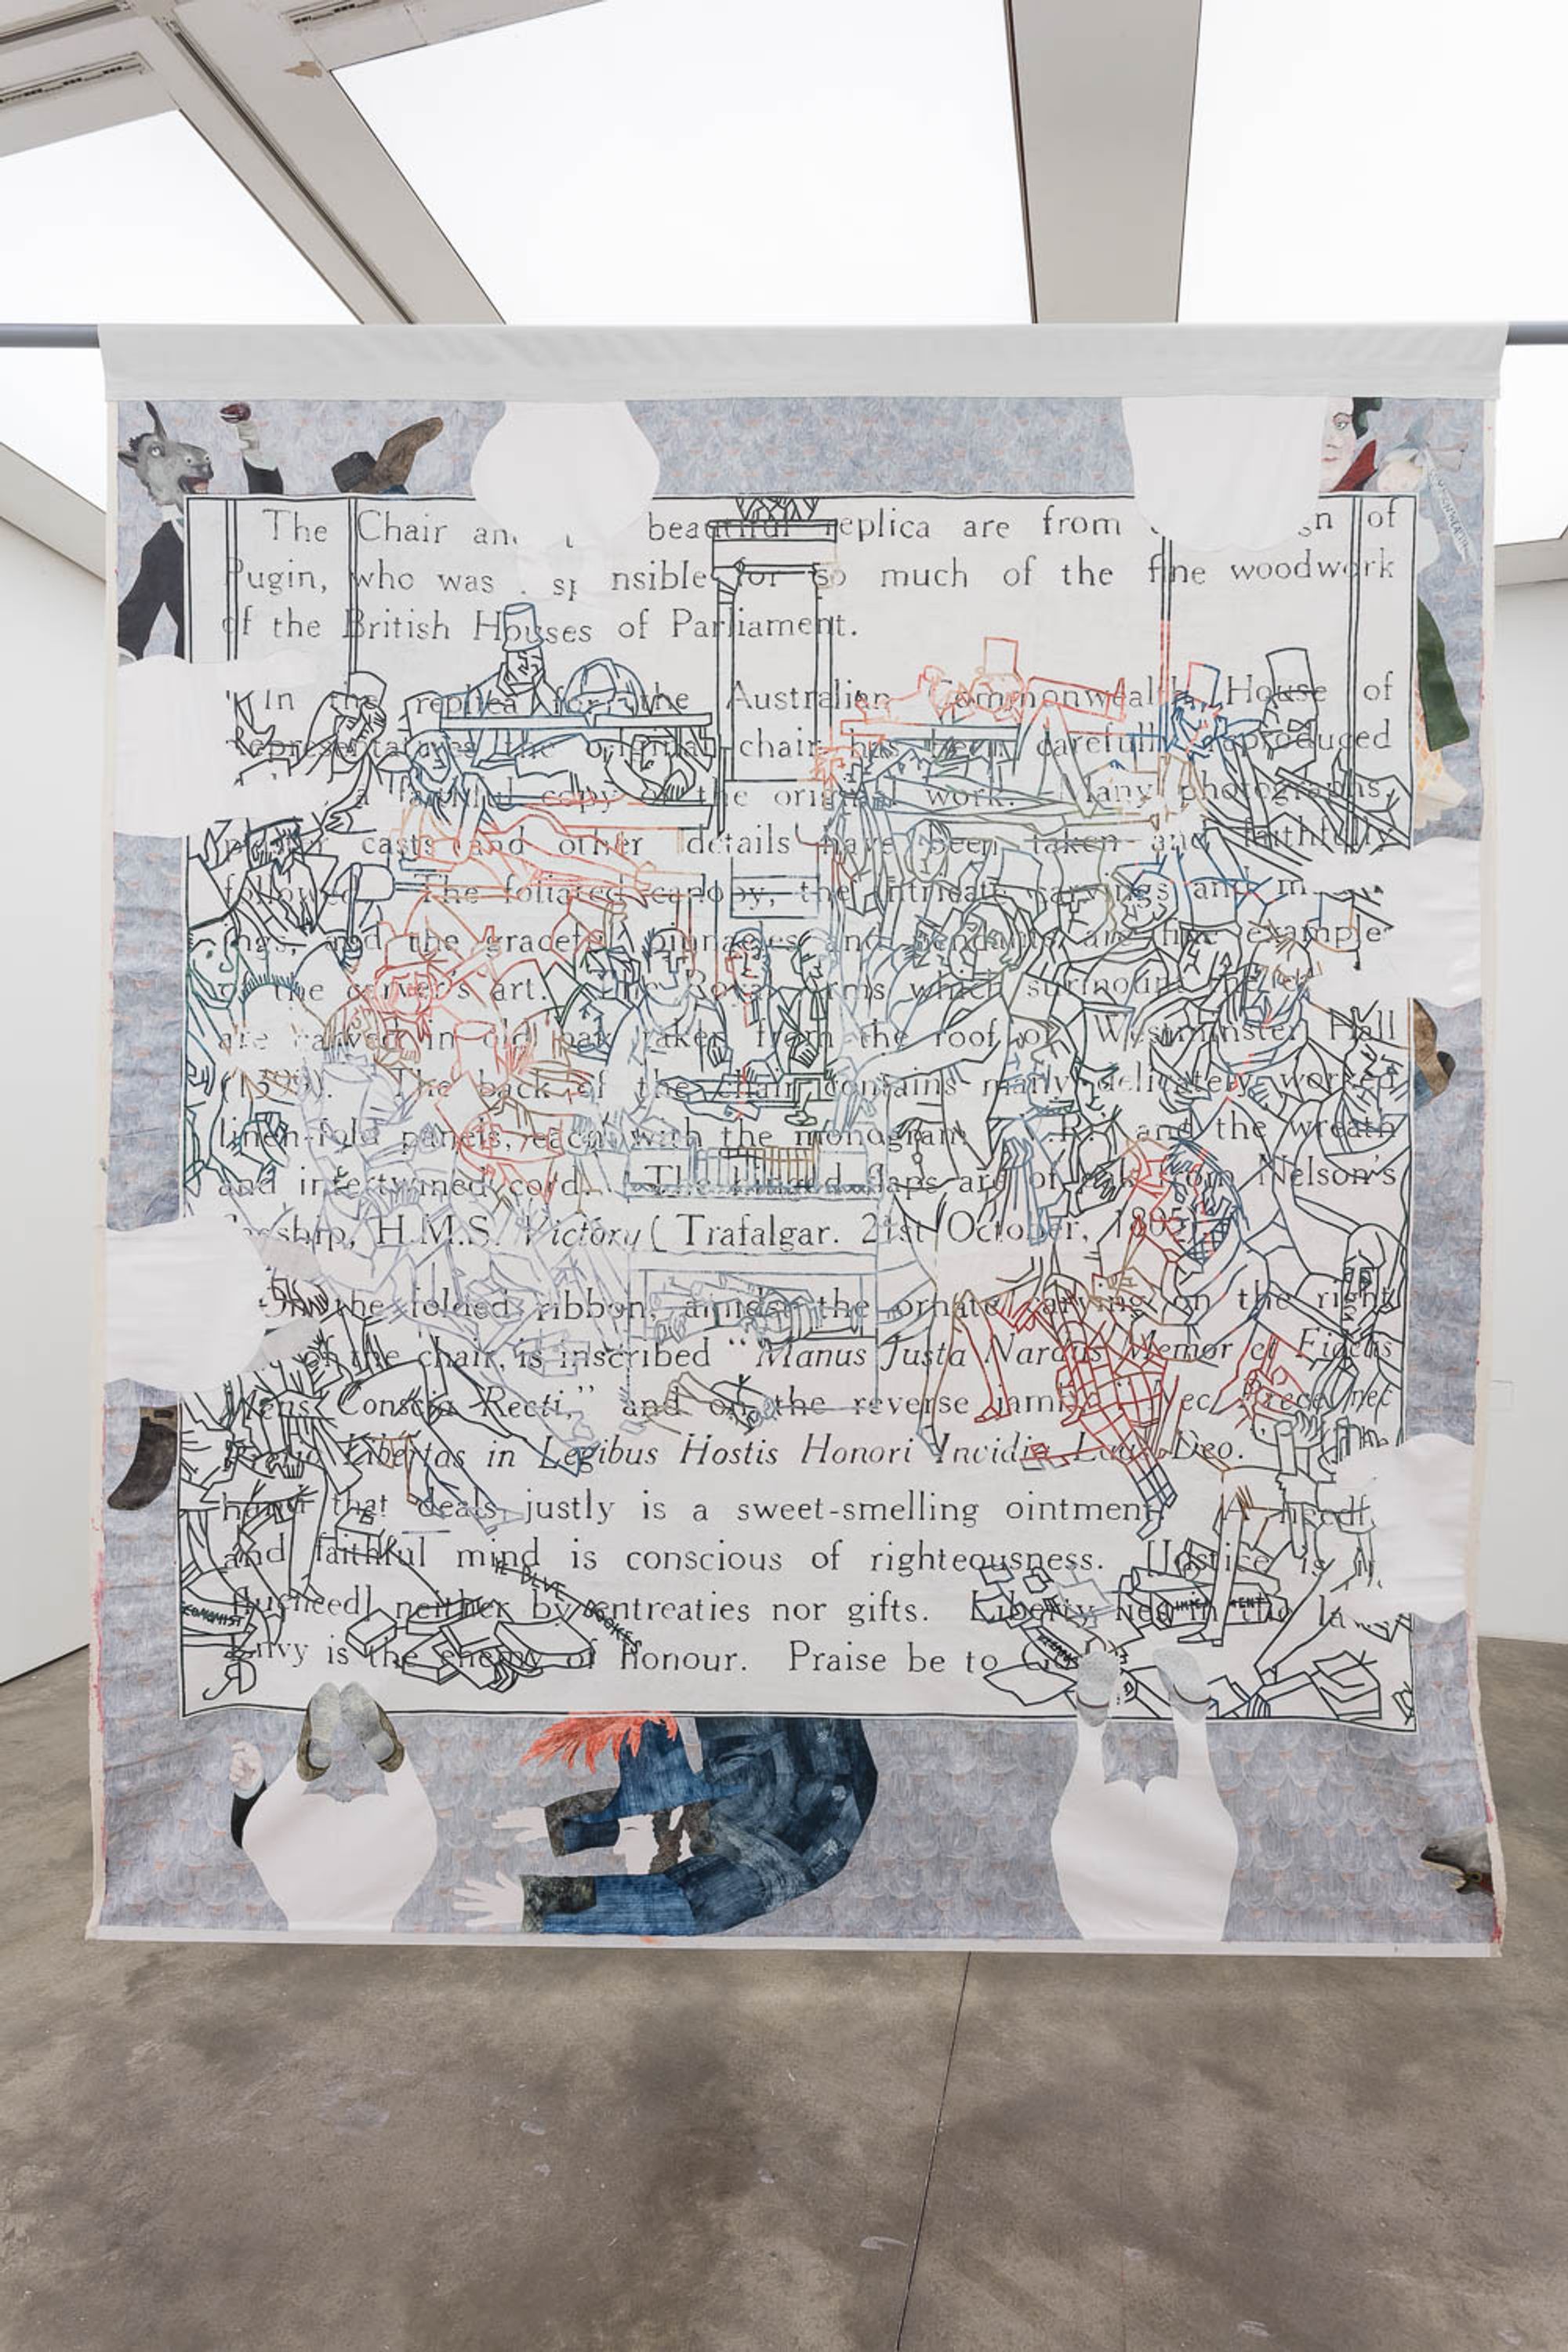 The Chair an beautiful replica are from of
Pugin, who was sp nsible for so much of the fine woodwork
of the British Houses of Parliament.
In the replica for the Australian Commonwealth House of
Representatives the original chair has been carefully reproduced
a faithful copy of the original work. Many photographs,
plaster casts and other details have been taken and faithfully
followed. The foliated canopy, the intricate carvings and m
ngs, and the graceful pinnacles and pendants, are fine example
the carver's art. The Royal Arms which surmount the
are carved in old oak taken from the roof of Westminster Hall
The back of the chair contains many delicately worked
linen-fold panels, each with the monogram .R. and the wreath
and intertwined cord. The hinged flaps are of oak from Nelson's
H.M.S. Victory ( Trafalgar. 21st October, 1805)
On the folded ribbon, amidst the ornate carving on the right
of the chair, is inscribed "Manus Justa Nardus Memor et Fidelis
Mens Conscia Recti," and on the reverse jamb Nec Prece nec
Libertas in Legibus Hostis Honori Invidia Laus Deo.
hand that deals justly is a sweet-smelling ointment. A heedf
and faithful mind is conscious of righteousness. Justice is
neither by entreaties nor gifts. Liberty lies in the la
THE BLUE BOOKES
CONQUIST
Envy is the enemy of honour. Praise be to